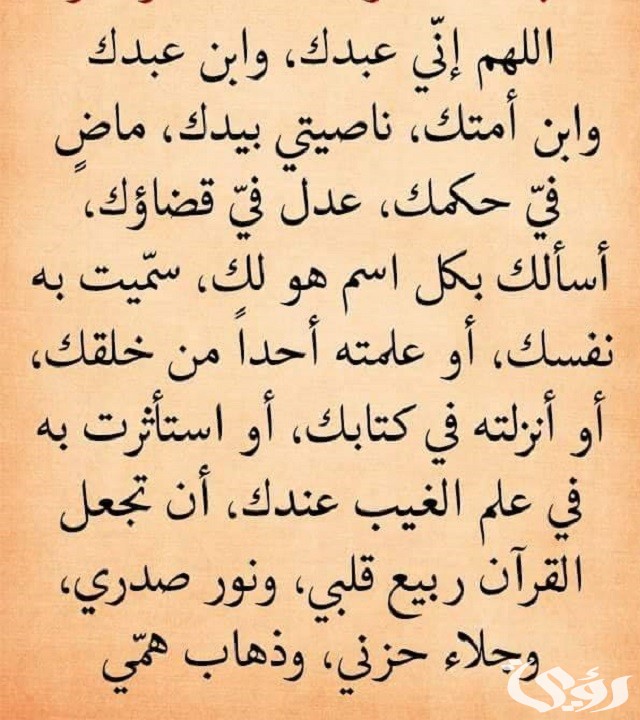 اللهم إنّي عبدك، وابن عبدك
وابن أمتك، ناصيتي بيدك، ماضٍ
فيّ حكمك، عدل فيّ قضاؤك،
أسألك بكل اسم هو لك، سمّيت به
نفسك، أو علمته أحداً من خلقك،
أو أنزلته في كتابك، أو استأثرت به
في علم الغيب عندك، أن تجعل
القرآن ربيع قلبي، ونور صدري،
وجلاء حزني، وذهاب همّي
رؤى